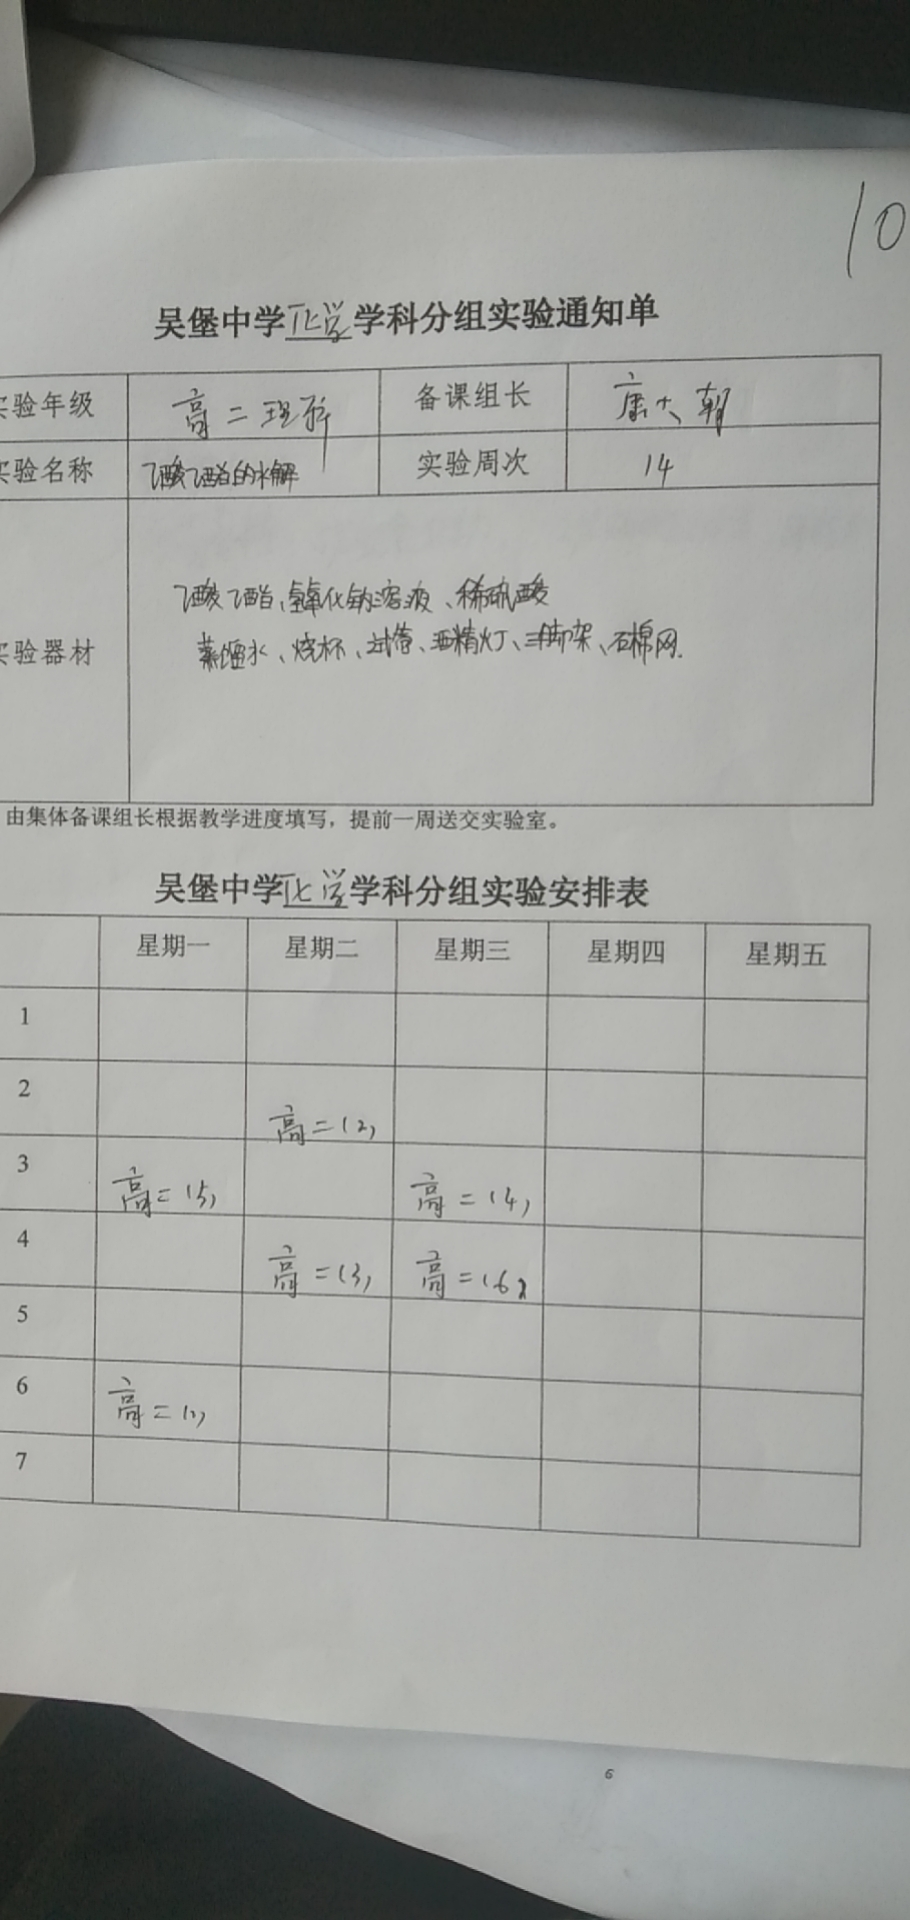 10
吴堡中学化学学科分组实验通知单
实验年级 高二理科 备课组长
实验名称 乙酸乙酯的水解 实验周次 14
乙酸乙酯、氢氧化钠溶液、稀硫酸
实验器材 蒸馏水、烧杯、试管、酒精灯、三脚架、石棉网.
由集体备课组长根据教学进度填写，提前一周送交实验室。
吴堡中学化学学科分组实验安排表
星期一 星期二 星期三 星期四 星期五
1
2 高二(2)
3 高二(5) 高二(4)
4 高二(3) 高二(6)
5
6 高二(1)
7
6